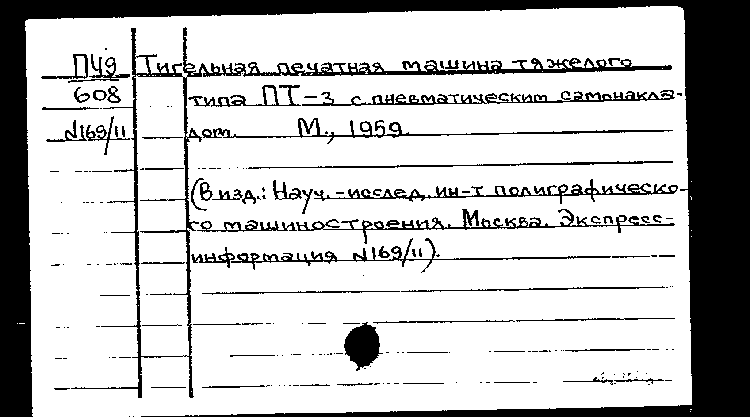 П49 Тигельная печатная машина тяжелого
608 типа ПТ-3 с пневматическим самонакла-
N169/11 дом. М., 1959.
(В изд.: Науч.-исслед. ин-т полиграфическо-
го машиностроения. Москва. Экспресс-
информация N169/11).